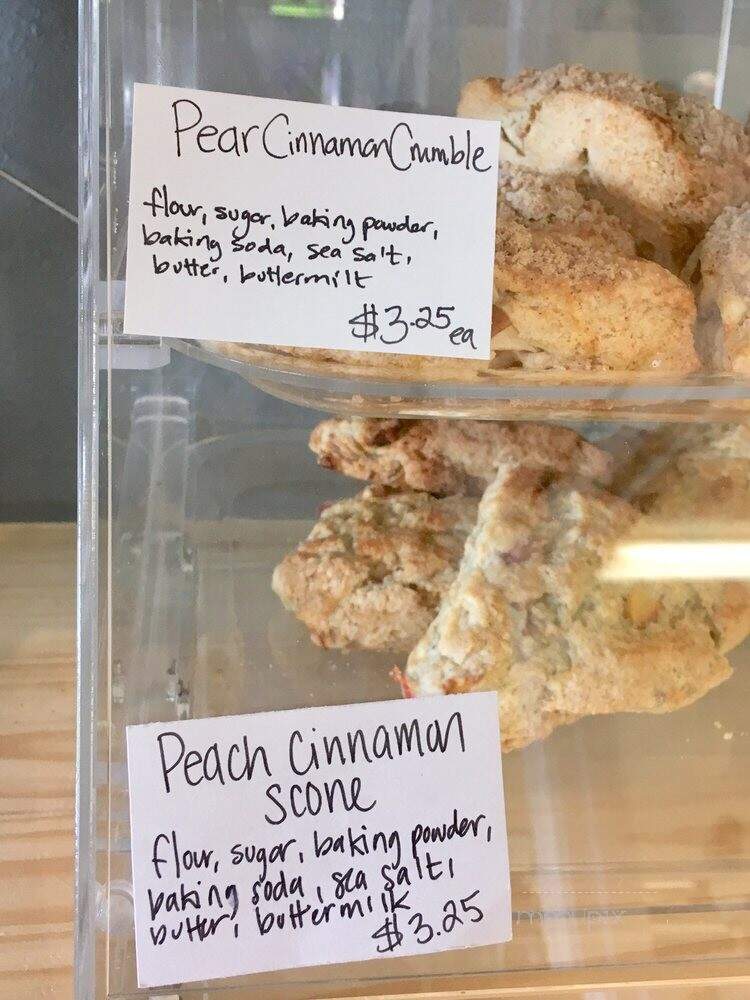 Pear Cinnaman Crumble
flour, sugar, baking powder,
baking soda, sea salt,
butter, buttermilk
$3.25 ea
Peach Cinnaman
scone
flour, sugar, baking powder,
baking soda, sea salt,
butter, buttermilk
$3.25